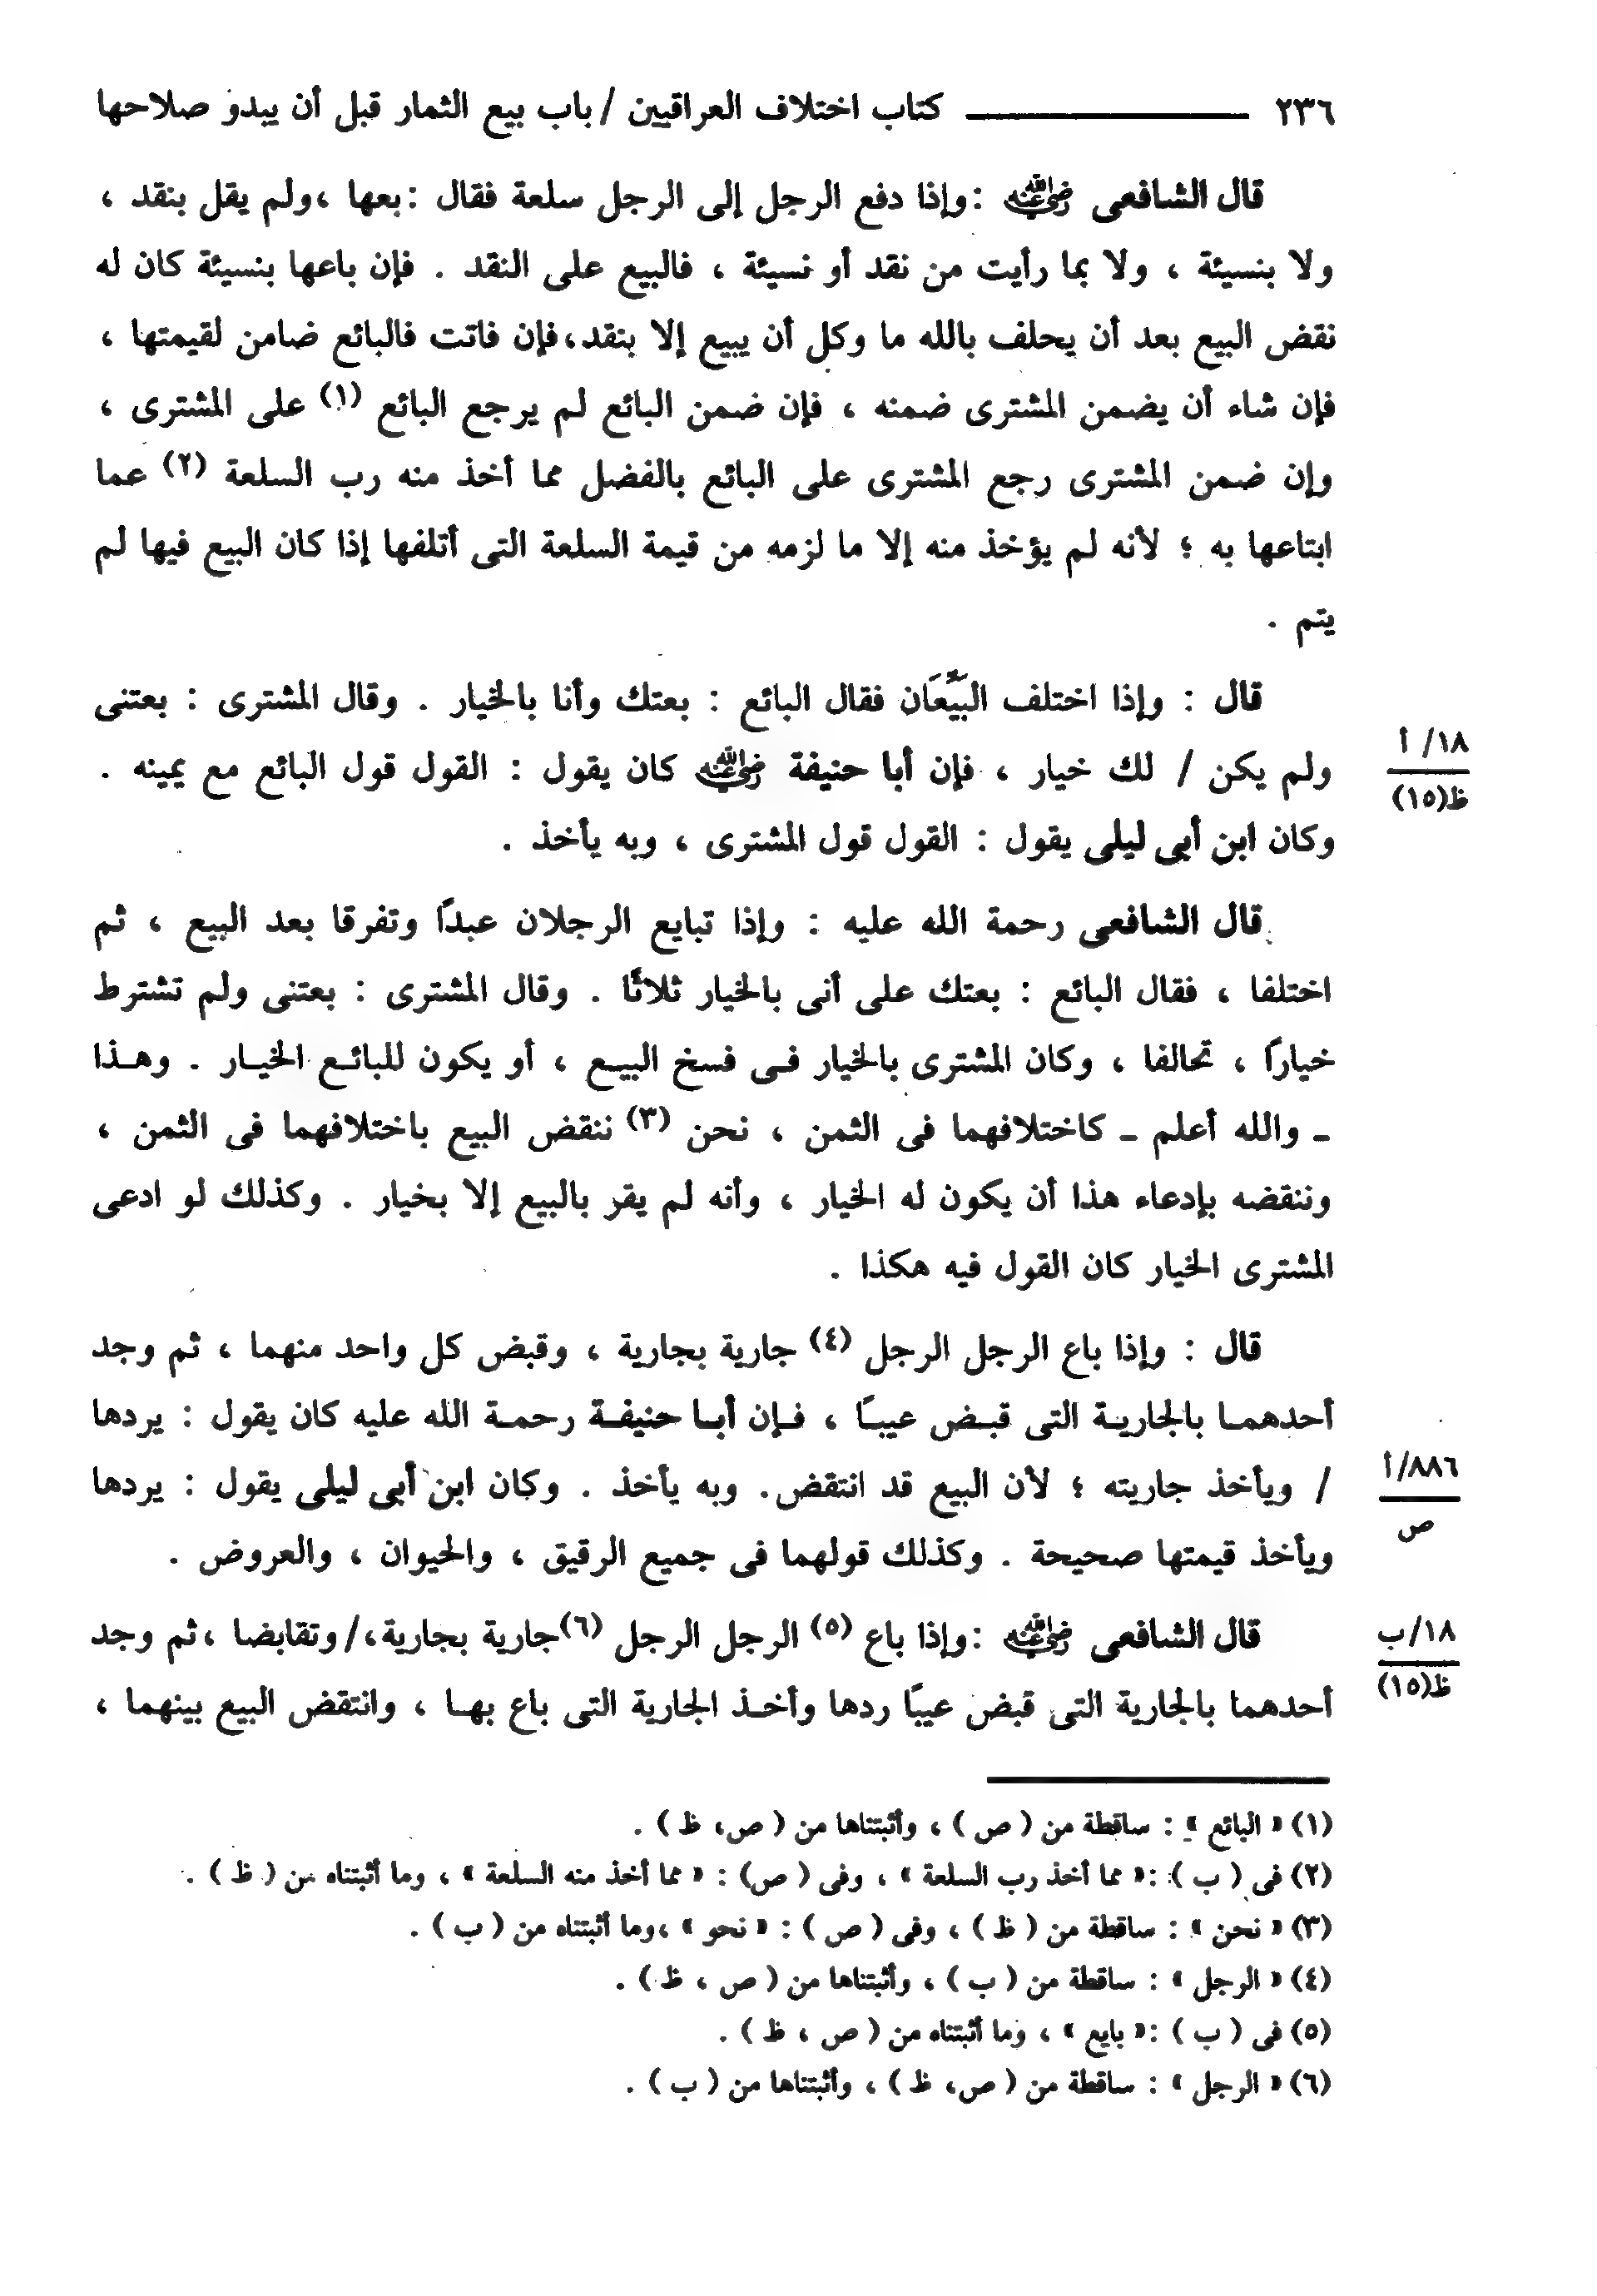 ٢٣٦ كتاب اختلاف العراقيين / باب بيع الثمار قبل أن يبدو صلاحها
قال الشافعى رضي الله عنه :وإذا دفع الرجل إلى الرجل سلعة فقال :بعها ،ولم يقل بنقد ،
ولا بنسيئة ، ولا بما رأيت من نقد أو نسيئة ، فالبيع على النقد . فإن باعها بنسيئة كان له
نقض البيع بعد أن يحلف بالله ما وكل أن يبيع إلا بنقد،فإن فاتت فالبائع ضامن لقيمتها ،
فإن شاء أن يضمن المشترى ضمنه ، فإن ضمن البائع لم يرجع البائع (١) على المشترى ،
وإن ضمن المشترى رجع المشترى على البائع بالفضل مما أخذ منه رب السلعة (٢) عما
ابتاعها به ؛ لأنه لم يؤخذ منه إلا ما لزمه من قيمة السلعة التى أتلفها إذا كان البيع فيها لم
يتم .
قال : وإذا اختلف البَيِّعَان فقال البائع : بعتك وأنا بالخيار . وقال المشترى : بعتنى
١٨/ أ
ولم يكن / لك خيار ، فإن أبا حنيفة رضي الله عنه كان يقول : القول قول البائع مع يمينه .
ظ(١٥)
وكان ابن أبى ليلى يقول : القول قول المشترى ، وبه يأخذ .
قال الشافعى رحمة الله عليه : وإذا تبايع الرجلان عبدًا وتفرقا بعد البيع ، ثم
اختلفا ، فقال البائع : بعتك على أنى بالخيار ثلاثًا . وقال المشترى : بعتنى ولم تشترط
خيارًا ، تحالفا ، وكان المشترى بالخيار فـى فسخ البيـع ، أو يكون للبائـع الخيـار . وهـذا
ـ والله أعلم ـ كاختلافهما فى الثمن ، نحن (٣) ننقض البيع باختلافهما فى الثمن ،
وننقضه بإدعاء هذا أن يكون له الخيار ، وأنه لم يقر بالبيع إلا بخيار . وكذلك لو ادعى
المشترى الخيار كان القول فيه هكذا .
قال : وإذا باع الرجل الرجل (٤) جارية بجارية ، وقبض كل واحد منهما ، ثم وجد
أحدهمـا بالجاريـة التى قبـض عيبـًا ، فـإن أبـا حنيفـة رحمـة الله عليه كان يقول : يردها
٨٨٦/أ
/ ويأخذ جاريته ؛ لأن البيع قد انتقض. وبه يأخذ . وكان ابن أبى ليلى يقول : يردها
ص
ويأخذ قيمتها صحيحة . وكذلك قولهما فى جميع الرقيق ، والحيوان ، والعروض .
١٨/ب
قال الشافعى رضي الله عنه :وإذا باع (٥) الرجل الرجل (٦)جارية بجارية،/وتقابضا ،ثم وجد
ظ(١٥)
أحدهما بالجارية التى قبض عيبًا ردها وأخـذ الجارية التى باع بهـا ، وانتقض البيع بينهما ،
(١) « البائع » : ساقطة من ( ص ) ، وأثبتناها من ( ص، ظ ) .
(٢) فى ( ب ) :« مما أخذ رب السلعة » ، وفى ( ص) : « مما أخذ منه السلعة » ، وما أثبتناه من ( ظ ) .
(٣) « نحن » : ساقطة من ( ظ ) ، وفى ( ص ) : « نحو » ،وما أثبتناه من ( ب ) .
(٤) « الرجل » : ساقطة من ( ب ) ، وأثبتناها من ( ص ، ظ ) .
(٥) فى ( ب ) :« بايع » ، وما أثبتناه من ( ص ، ظ ) .
(٦) « الرجل » : ساقطة من ( ص، ظ ) ، وأثبتناها من ( ب ) .